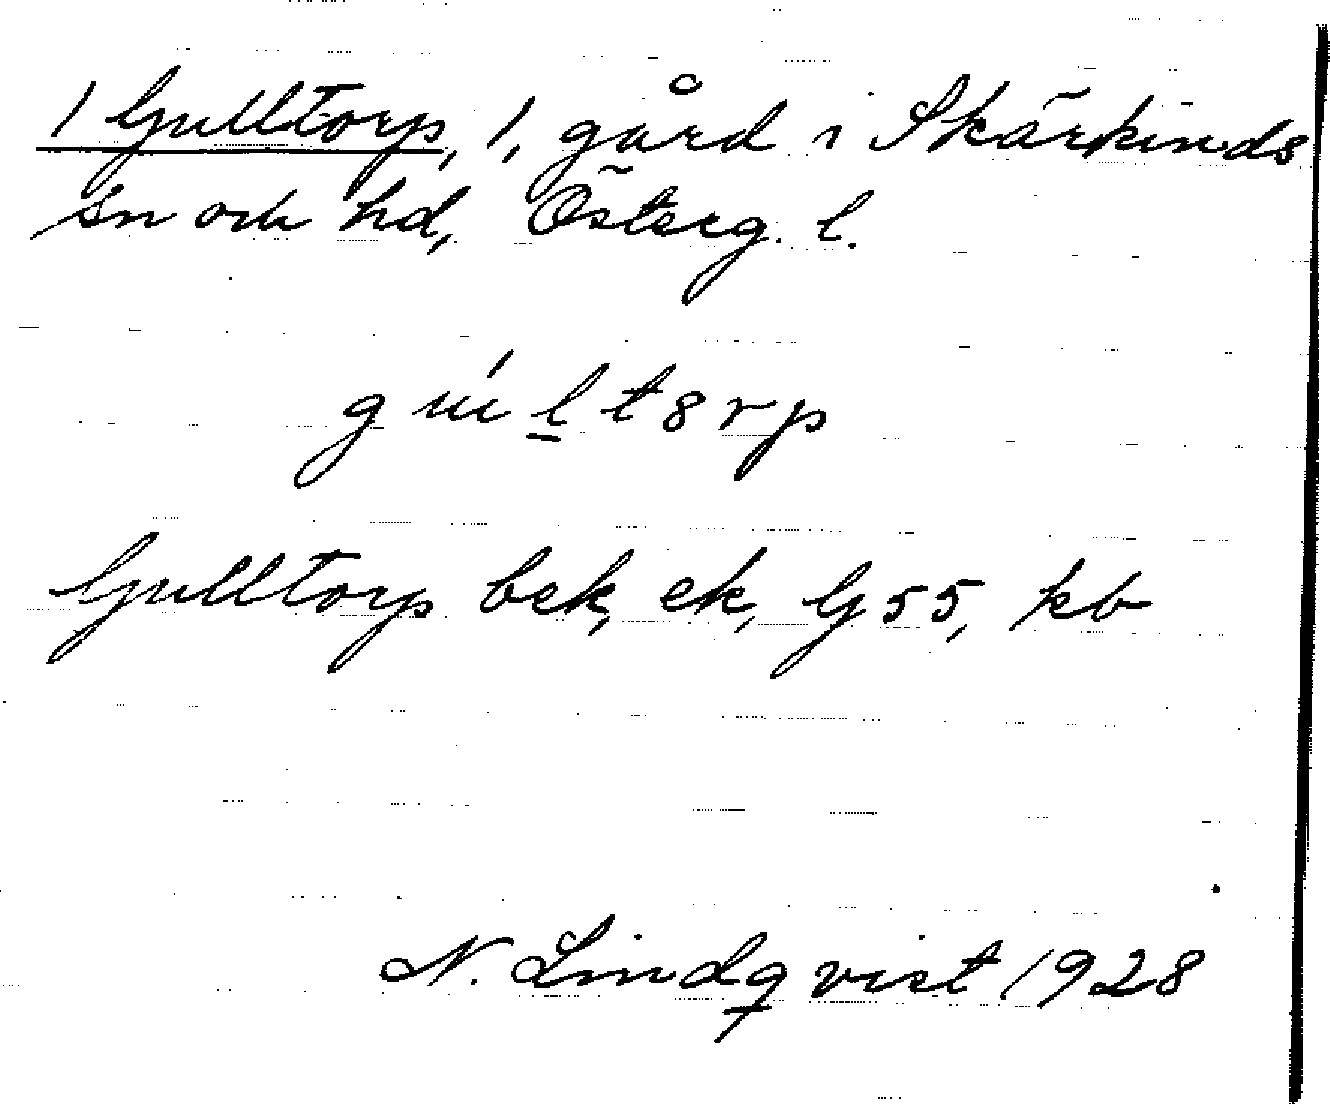 1 Gulltorp, 1, gård i Skärkinds
sn och hd, Österg. l.
gúḻt8rp
Gulltorp bek, ek, G55, kb
N. Lindqvist 1928